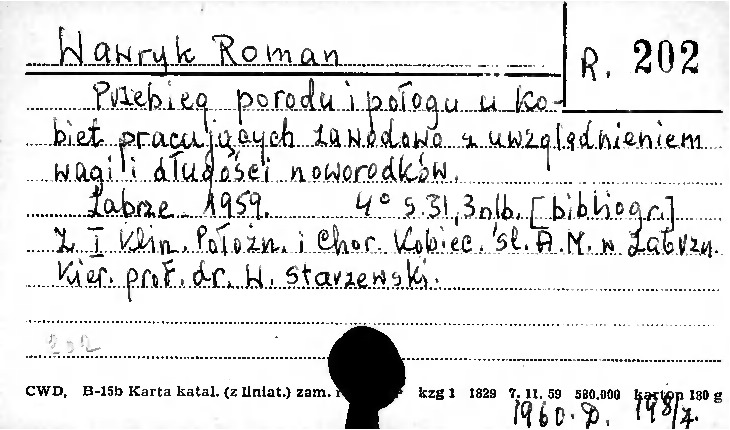 Wawryk Roman
R. 202
Przebieg porodu i połogu u ko-
biet pracujących zawodowo z uwzględnieniem
wagi i długości noworodków.
Zabrze 1959. 4° s. 31, 3 nlb. [bibliogr.]
Z I Klin. Położn. i Chor. Kobiec. Śl. A.M. w Zabrzu.
Kier. prof. dr. W. Starzewski.
202
CWD, B-15b Karta katal. (z liniat.) zam. kzg 1 1829 7. 11. 59 580.000 karton 180 g
1960. D. 198/z.